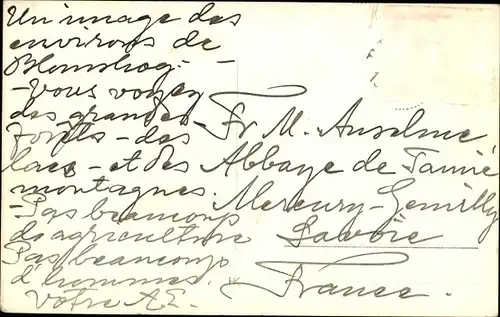 Un image des
environs de
Blomskog. -
- Vous voyez
des grandes
forêts - des
lacs - et des
montagnes.
- Pas beaucoup
de agriculture
Pas beaucoup
d'hommes.
Votre A.E.
Fr M. Anselme
Abbaye de Tamié
Mercury-Gemilly
Savoie
France.